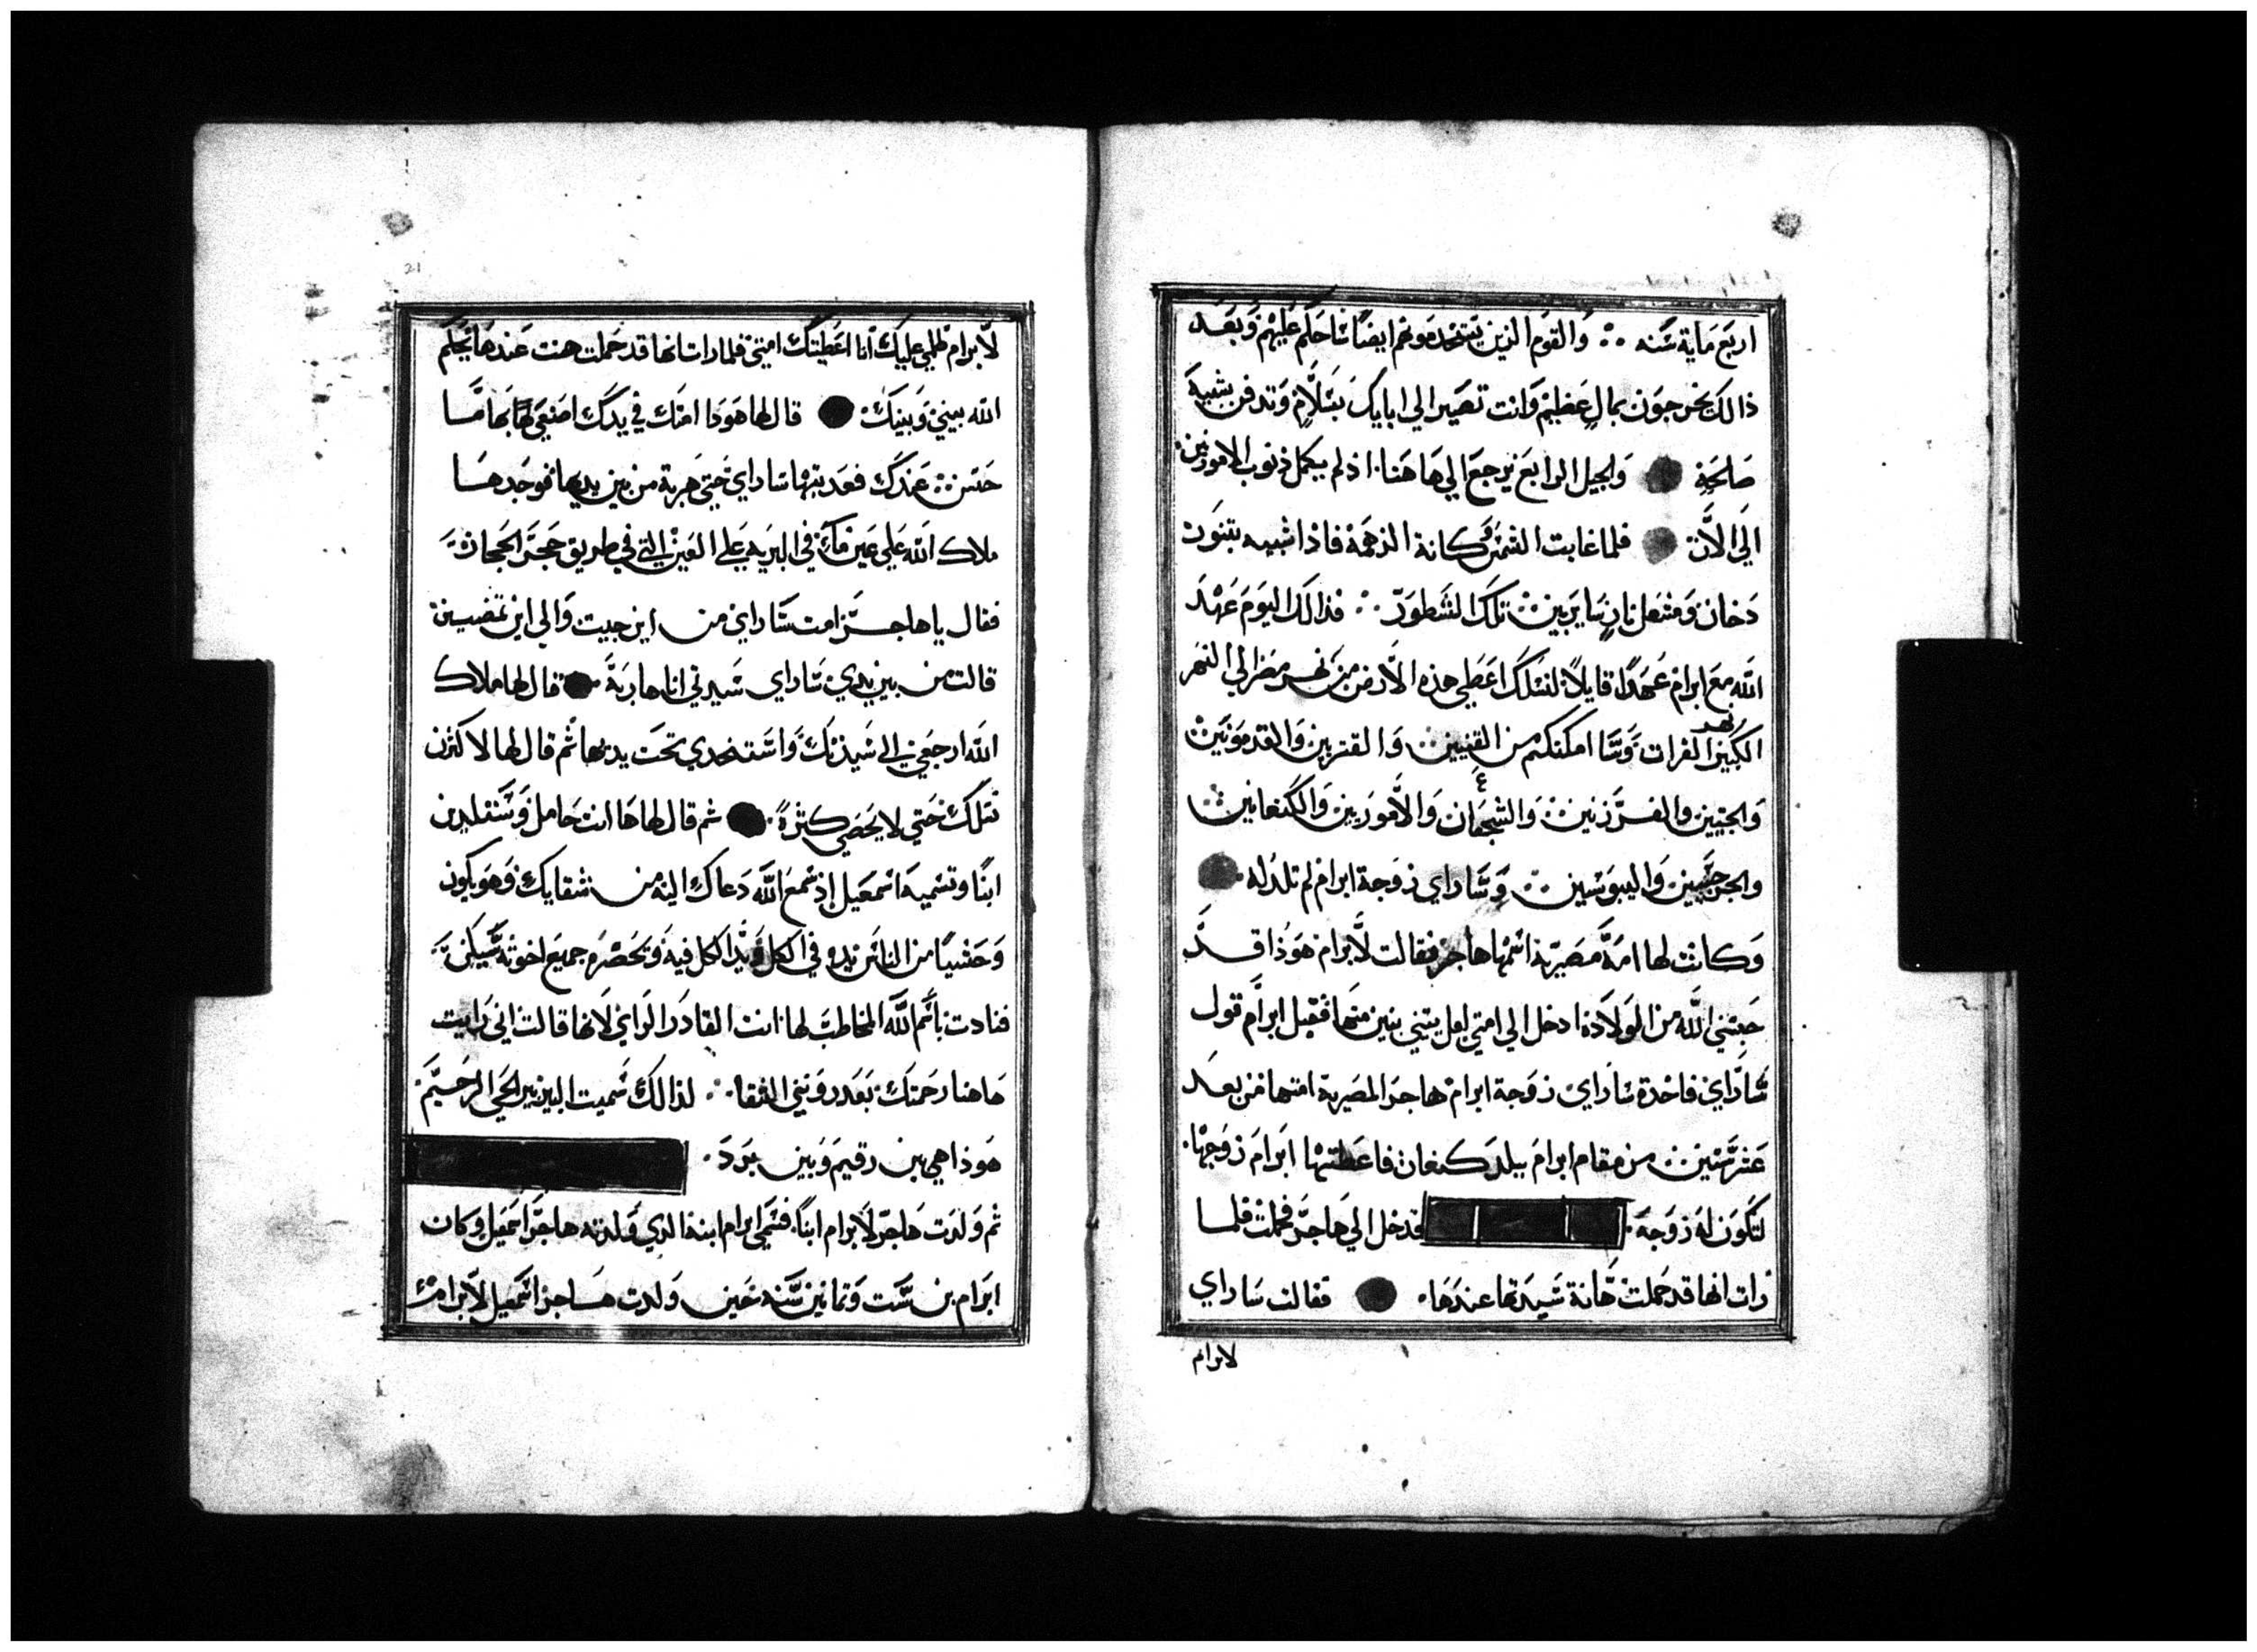 اربع ماية سنه ∴ والقوم الذين يستخدمونهم ايضا ساحكم عليهم وبعد
ذالك يخرجون بمال عظيم وانت تصير الي ابايك بسلام وتدفن بشيبة
صالحة والجيل الرابع يرجع الي هاهنا اذ لم يكمل ذنوب الامورنين
الي الان فلما غابت الشمس وكانة الدهمة فاذا شبيه بتنور
دخان ومشعل نار ساير بين تلك الشطور ∴ فذالك اليوم عهد
الله مع ابرام عهدا قايلا لنسلك اعطي هذه الارض من نهر مصر الي النهر
الكبير نهر الفرات وسا امكنكم من القنيين والقنزيين والقدمونيين
والحيين والفرزنين والشجعان والاموريين والكنعانيين
والجرجسين واليبوسين ∴ وساراي زوجة ابرام لم تلد له
وكانت لها امة مصرية اسمها هاجر فقالت لابرام هوذا قد
حبسني الله من الولادة ادخل الي امتي لعل يبتني بنين منها فقبل ابرام قول
ساراي فاخدة ساراي زوجة ابرام هاجر المصرية امتها من بعد
عشر سنين من مقام ابرام ببلد كنعان فاعطتها ابرام زوجها
لتكون له زوجه فدخل الي هاجر فحملت فلما
رات انها قد حملت هانة سيدتها عندها فقالت ساراي
لابرام
لابرام ظلمي عليك انا اعطيتك امتي فلما رات انها قد حملت هنت عندها يحكم
الله بيني وبينك قال لها هوذا امتك في يدك اصنعي لها بها ما
حسن عندك فعدبتها ساراي حتي هربة من بين يديها فوجدها
ملاك الله علي عين ماء في البريه علي العين التي في طريق حجر الحجاز
فقال ياهاجر امت ساراي من اين جيت والي اين تمضين
قالت من بين يدي ساراي سيدتي انا هاربة قال لها ملاك
الله ارجعي الي سيدتك واستخدي تحت يديها ثم قال لها لاكثرن
نسلك حتي لا يحصي كثرة ثم قال لها ها انت حامل وستلدين
ابنا وتسميه اسمعيل اذ سمع الله دعاك اليه من شقايك وهو يكون
وحشيا من الناس يده في الكل ويد الكل فيه وتحصره جميع اخوته سيكن
فنادت باسم الله المخاطب لها انت القادر الراي لانها قالت اني رايت
هاهنا رحمتك بعد رويتي الشقا ∴ لذالك سميت البير بير الحي الرحيم
هوذا هي بين رقيم وبين برد
ثم ولدت هاجر لابرام ابنا فسمي ابرام ابنه الدي ولدته هاجر اسمعيل وكان
ابرام بن ست وثمانين سنه حين ولدت هاجر اسمعيل لابرام